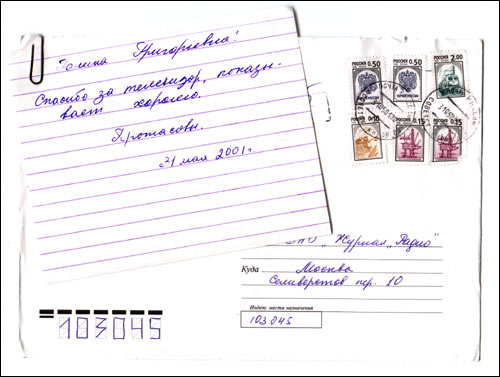 Григорьевна!
Спасибо за телевизор, показы-
вает хорошо.
Протасовы.
31 мая 2001 г.
РОССИЯ 0.50
РОССИЯ 0.50
РОССИЯ 2.00
РОССИЯ
РОССИЯ 0.15
РОССИЯ 0.15
"Журнал "Радио"
Куда Москва
Селиверстов пер. 10
Индекс места назначения
103045
103045